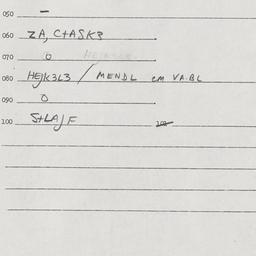 050 –
060 ZA, C+ASK?
070 0
080 HEJK3L3 / MENDL EM VA.BL
090 0
100 S+LAJF